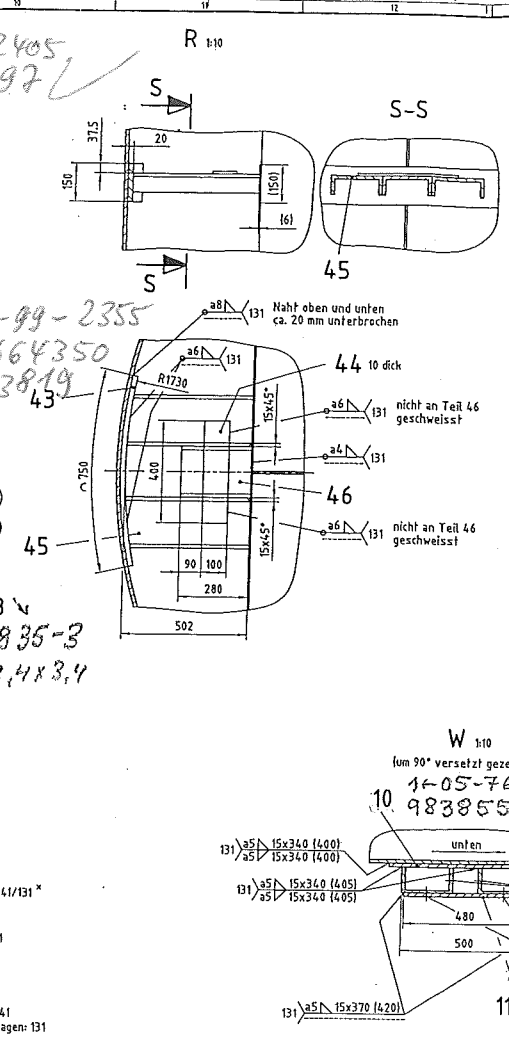 10
11
12
R 1:10
2405
97
S
S-S
37.5
20
150
(150)
(6)
S
45
-99-2355
664350
3819
a8 131 Naht oben und unten
ca. 20 mm unterbrochen
a6 131
R1730
43
44 10 dick
15x45°
a6 131 nicht an Teil 46
geschweisst
a4 131
750
400
46
45
15x45°
a6 131 nicht an Teil 46
geschweisst
90
100
280
502
835-3
,4x3,4
W 1:10
(um 90° versetzt geze
1-05-76
983855
10
unten
131 a5 15x340 (400)
a5 15x340 (400)
131 a5 15x340 (405)
a5 15x340 (405)
41/131 x
480
500
1
11
131 a5 15x370 (420)
41
agen: 131